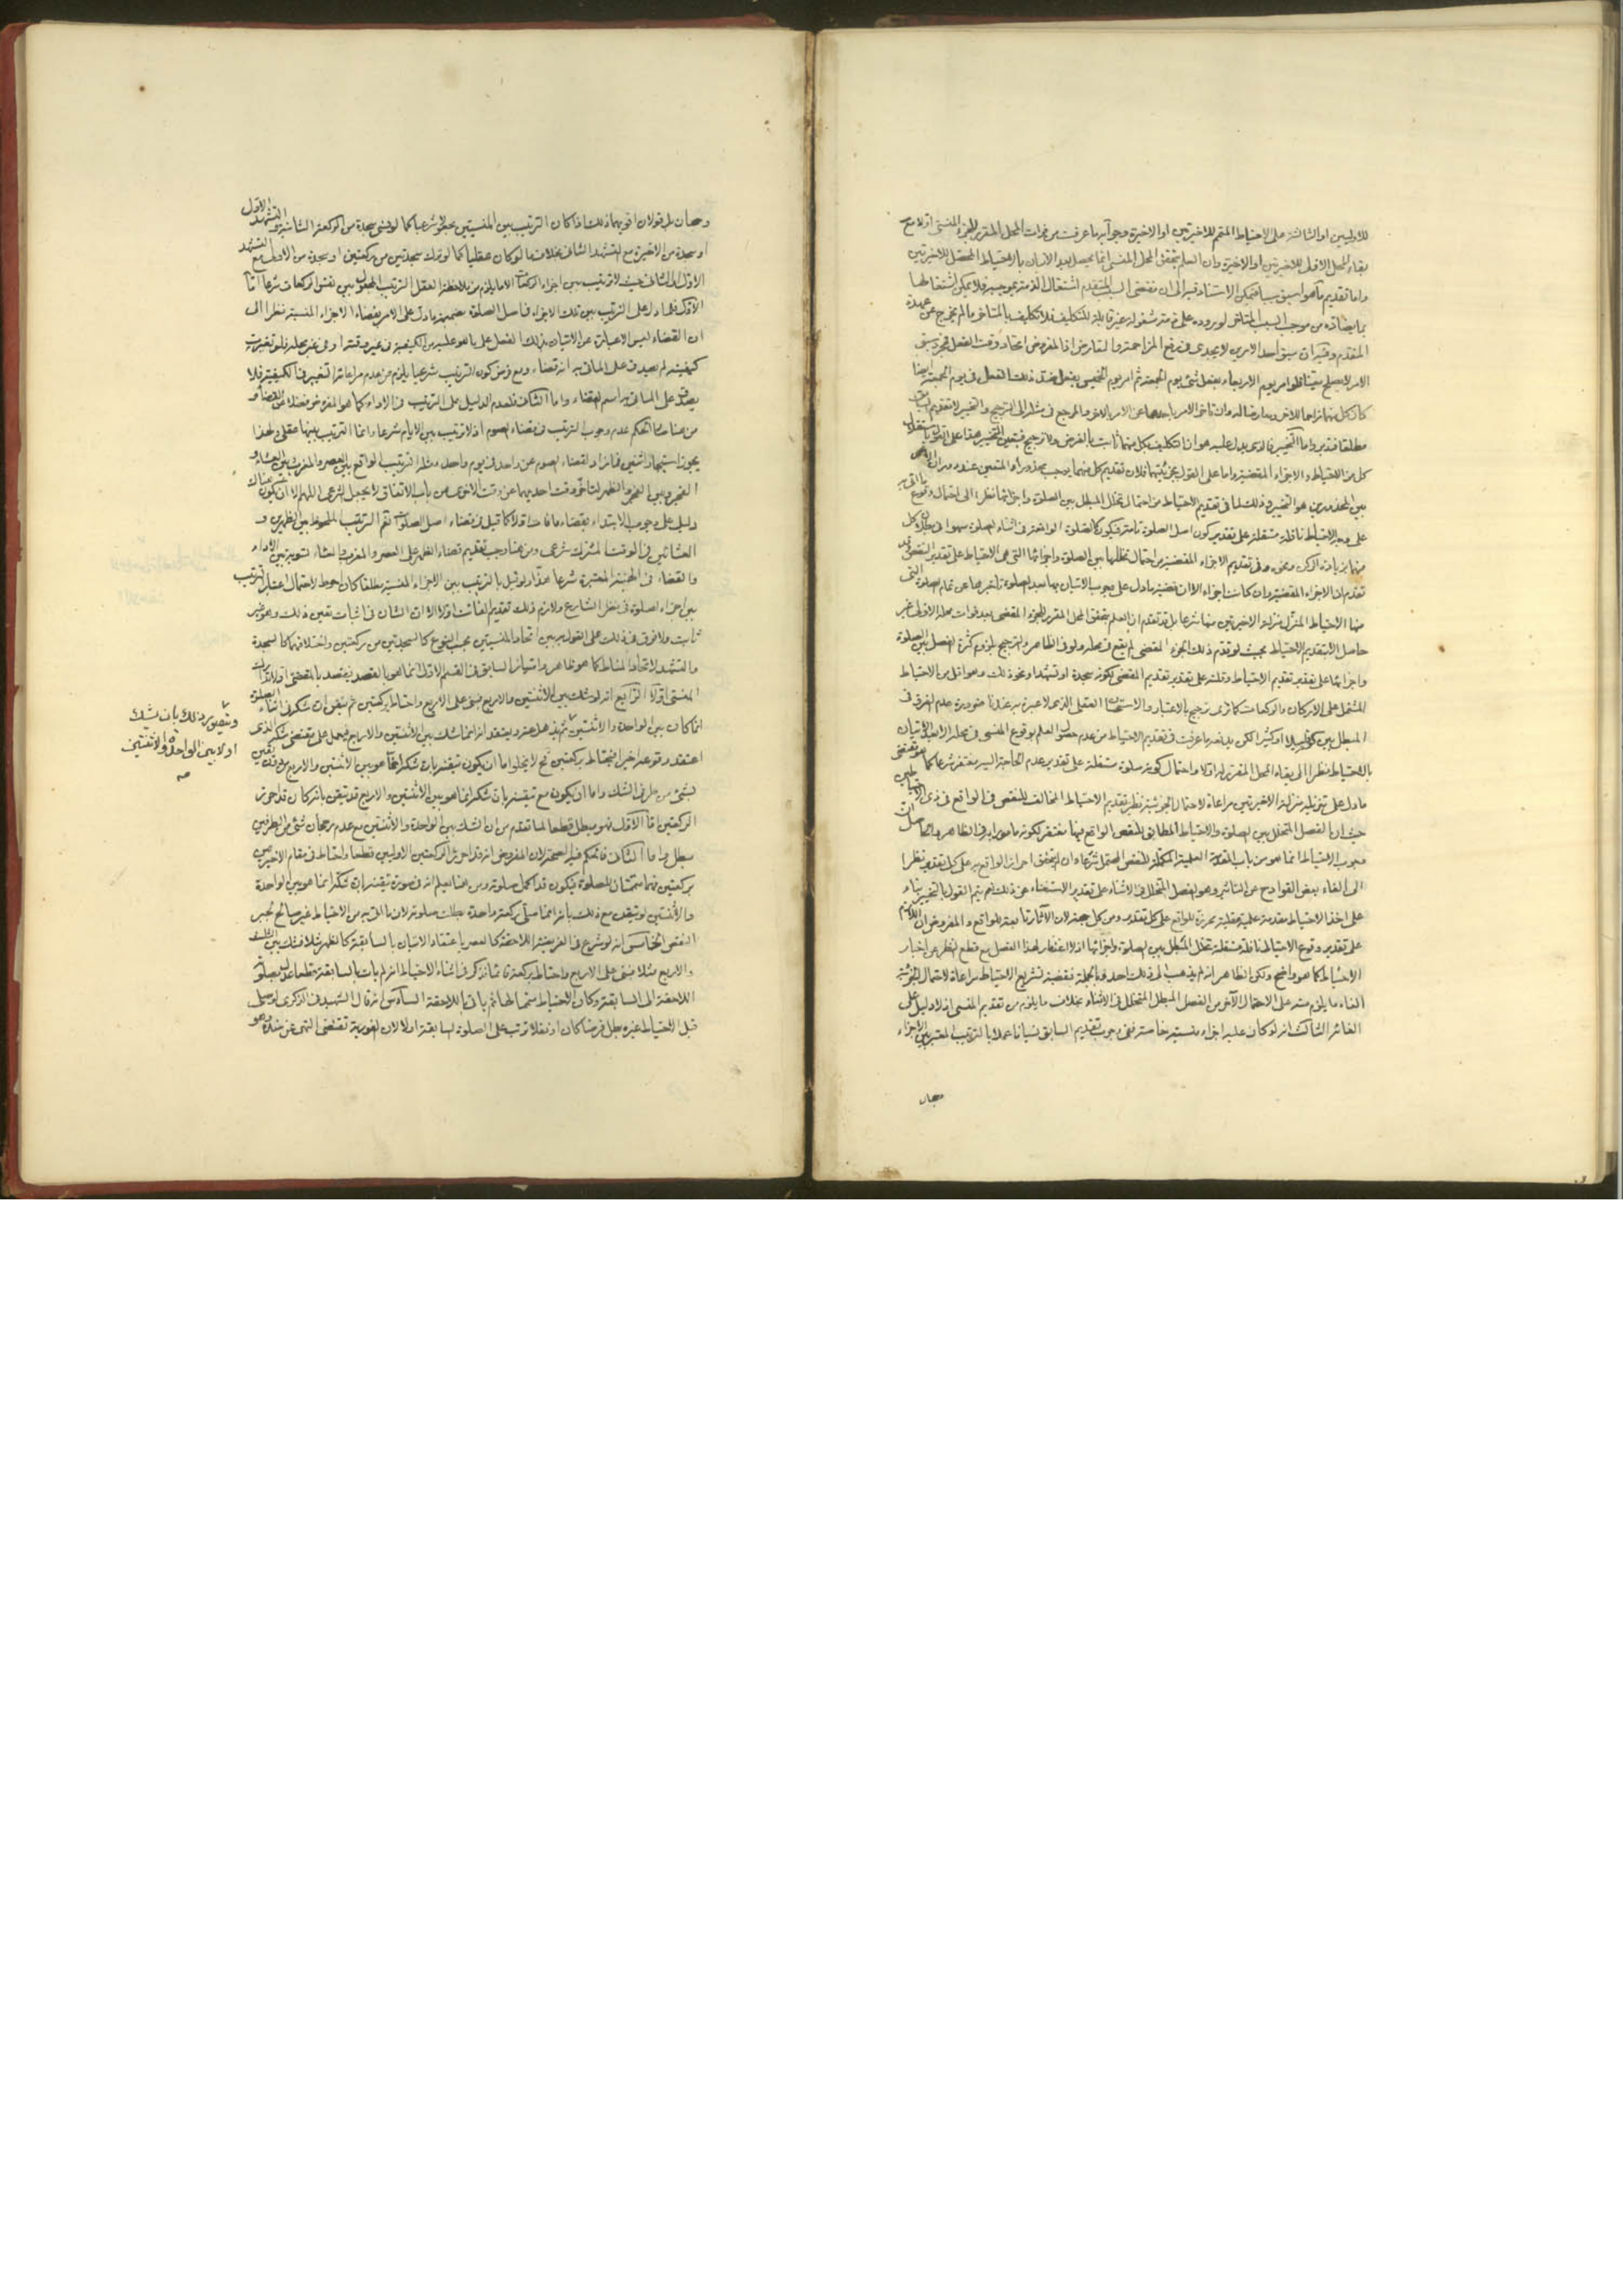 للاوليين او الثالثة على الاحتياط المتمم للاخيرتين او الاخيرة وجوابه ما عرفت من فوات المحل المقرر للجزء المنسى اولا مع
بقاء المحل الاول للاخيرتين او الاخيرة وان العلم بتحقق المحل المنسى انما يحصل بعد الاتيان بالاحتياط المحصل للاخيرتين
واما تقديم ما هو اسبق سببا فيمكن الاستناد فيه الى ان مقتضى السبب المتقدم اشتغال الذمة بموجبه فلا يمكن اشتغالها
بما يضاده من موجب السبب المتاخر لوروده على ذمة مشغولة غير قابلة للتكليف فلا تكليف بالمتاخر ما لم يخرج عن عهدة
المقدم وفيه ان سبق احد الامرين لا يجدى فى رفع المزاحمة والتعارض اذا المفروض اتحاد وقت الفعل فمجرد سبق
الامر لا يصلح معينا فلو امر يوم الاربعاء بفعل شئ يوم الجمعة ثم امر يوم الخميس بفعل ضد ذلك الفعل فى يوم الجمعة ايضا
كان كل منهما مزاحما للاخر ومعارضا له وان تاخر الامر باحدهما عن الامر بالاخر والمرجع فى مثله الى الترجيح والتخيير لا تقديم السابق
مطلقا فتدبر واما التخيير فالذى يدل عليه هو ان التكليف بكل منهما ثابت بالفرض ولا ترجيح فيتعين التخيير هذا على القول باستقلال
كل من الاحتياط والاجزاء المقضية واما على القول بجزئيتهما فلان تقديم كل منهما يوجب محذورا والمتعين عند دوران الامر
بين المحذورين هو التخيير وذلك لما فى تقديم الاحتياط من احتمال تخلل المبطل بين الصلوة واجزائها نظرا الى احتمال وقوع ما اتى به
على وجه الاحتياط نافلة مستقلة على تقدير كون اصل الصلوة تامة فيكون كالصلوة الواقعة فى اثناء الصلوة سهوا فى بطلان كل
منهما بزيادة الركن ونحوه وفى تقديم الاجزاء المقضية من احتمال تخللها بين الصلوة واجزائها التى هى الاحتياط على تقدير النقص وقد
تقدم ان الاجزاء المقضية وان كانت اجزاء الا ان قضية ما دل على وجوب الاتيان بها بعد الصلوة تاخيرها عن تمام الصلوة التى
منها الاحتياط المنزل منزلة الاخيرتين منها شرعا بل قد تقدم ان العلم بتحقق المحل المقرر للجزء المقضى بعد فوات محله الاول غير
حاصل الا بتقديم الاحتياط بحيث لو قدم ذلك الجزء المقضى لم يقع فى محله ولو فى الظاهر والترجيح بلزوم كثرة الفصل بين الصلوة
واجزائها على تقدير تقديم الاحتياط وقلته على تقدير تقديم المقضى لكونه سجدة او تشهدا ونحو ذلك وهو اقل من الاحتياط
المشتمل على الاركان والركعات كما ترى ترجيح بالاعتبار والاستحسان العقلى الذى لا عبرة به عندنا ضرورة عدم الفرق فى
المبطل بين كونه قليلا او كثيرا لكن يدفعه ما عرفت فى تقديم الاحتياط من عدم حصول العلم بوقوع المنسى فى محله الا بعد الاتيان
بالاحتياط نظرا الى بقاء المحل المقرر له اولا واحتمال كونه صلوة مستقلة على تقدير عدم الحاجة اليه مغتفر شرعا كما هو مقتضى
ما دل على تنزيله منزلة الاخيرتين مراعاة لاحتمال الجزئية نظير تقديم الاحتياط المخالف للنقص فى الواقع فى ذى الاحتياطين
حيث ان الفصل المتخلل بين الصلوة والاحتياط المطابق للنقص الواقع فيها مغتفر لكونه مامورا به فى الظاهر والحاصل ان
وجوب الاحتياط انما هو من باب المقدمة العلمية المكملة للنقص المحتمل شرعا وان لم يتحقق احراز الواقع به على كل تقدير نظرا
الى الغاء بعض القوادح عن التاثير وهو الفصل المتخلل فى الاثناء على تقدير الاستغناء عن ذلك نعم يتم القول بالتخيير بناء
على اخذ الاحتياط مقدمة علمية عقلية محرزة للواقع على كل تقدير ومن كل جهة لان الآثار تابعة للواقع والمفروض ان اللازم
على تقدير وقوع الاحتياط نافلة مستقلة تخلل المبطل بين الصلوة واجزائها اذ لا اغتفار لهذا الفصل مع قطع النظر عن اخبار
الاحتياط كما هو واضح ولكن الظاهر انه لم يذهب الى ذلك احد وبالجملة فقضية تشريع الاحتياط مراعاة لاحتمال الجزئية
الغاء ما يلزم منه على الاحتمال الآخر من الفصل المبطل المتخلل فى الاثناء بخلاف ما يلزم من تقديم المنسى اذ لا دليل على
الغائه الثالث انه لو كان عليه اجزاء منسية خاصة ففى وجوب تقديم السابق نسيانا عملا بالترتيب المعتبر بين الاجزاء
وجهان بل قولان اقويهما ذلك اذا كان الترتيب بين المنسيين مجعولا شرعيا كما لو نسى سجدة من الركعة الثانية والتشهد الاول
او سجدة من الاخيرة مع التشهد الثانى بخلاف ما لو كان عقليا كما لو ترك سجدتين من ركعتين او سجدة من الاولى مع التشهد
الاول او الثانى حيث لا ترتيب بين اجزاء الركعات الا ما يلزم من ملاحظة العقل الترتيب المجعول بين نفس الركعات شرعا اما
الاول فلما دل على الترتيب بين تلك الاجزاء فى اصل الصلوة بضميمة ما دل على الامر بقضاء الاجزاء المنسية نظرا الى
ان القضاء ليس الا عبارة عن الاتيان بذلك الفعل على ما هو عليه من الكيفية فى غير وقته او فى غير محله فلو تغيرت
كيفيته لم يصدق على الماتى به انه قضاء ومع فرض كون الترتيب شرعيا يلزم من عدم مراعاته التغيير فى الكيفية فلا
يصدق على الماتى به اسم القضاء واما الثانى فلعدم الدليل على الترتيب فى الاداء كما هو المفروض فضلا عن القضاء و
من هنا صح الحكم بعدم وجوب الترتيب فى قضاء الصوم اذ لا ترتيب بين الايام شرعا وانما الترتيب بينها عقلى ولهذا
يجوز استيجار اثنين فما زاد لقضاء الصوم عن واحد فى يوم واحد ومثله الترتيب الواقع بين العصر والمغرب وبين العشاء و
الفجر وبين الفجر والظهر لتاخر وقت احديهما عن وقت الاخرى من باب الاتفاق لا بجعل الشرعى اللهم الا ان يكون هناك
دليل على وجوب الابتداء بقضاء ما فات اولا كما قيل فى قضاء اصل الصلوات نعم الترتيب الملحوظ بين الظهرين و
العشائين فى الوقت المشترك شرعى ومن هنا وجب تقديم قضاء الظهر على العصر والمغرب على العشاء لتسوية بين الاداء
والقضاء فى الهيئة المعتبرة شرعا هذا ولو قيل بالترتيب بين الاجزاء المنسية مطلقا كان احوط لاحتمال اعتبار الترتيب
بين اجزاء الصلوة فى نظر الشارع ولازم ذلك تقديم الفائت اولا الا ان الشان فى اثبات تعين ذلك وهو غير
ثابت ولا فرق فى ذلك على القولين بين اتحاد المنسيين بحسب النوع كالسجدتين من ركعتين واختلافهما كالسجدة
والتشهد لاتحاد المناط كما هو ظاهر وامتياز السابق فى القسم الاول انما هو بالقصد فيقصد بالمقضى اولا تدارك
المنسى اولا الرابع انه لو شك بين الاثنتين والاربع فبنى على الاربع واحتاط بركعتين ثم تيقن ان شكه فى اثناء الصلوة
انما كان بين الواحدة والاثنتين فهل يعتقد انه انما شك بين الاثنتين والاربع فيعمل على مقتضى شكه الذى
ويتصور ذلك بان يشك
اولا بين الواحدة والاثنتين
صح
اعتقد وقوعه اخيرا فيحتاط بركعتين نعم لا يخلو اما ان يكون تيقنه بان شكه انما هو بين الاثنتين والاربع
بشئ من طرفى الشك واما ان يكون مع تيقنه بان شكه انما هو بين الاثنتين والاربع قد تيقن بانه كان قد احرز
الركعتين اما الاول فهو مبطل قطعا لما تقدم من ان الشك بين الواحدة والاثنتين مع عدم رجحان شئ من الطرفين
مبطل واما الثانى فالحكم فيه الصحة لان المفروض انه قد احرز الركعتين الاوليين قطعا واحتاط فى مقام الاخيرتين
بركعتين فهما متممتان للصلوة فيكون قد اكمل صلوته ومن هنا يعلم انه فى صورة تيقنه بان شكه انما هو بين الواحدة
والاثنتين لو تيقن مع ذلك بانه انما صلى ركعة واحدة بطلت صلوته لان ما اتى به من الاحتياط غير صالح لجبر
النقص الخامس انه لو شرع فى الفريضة اللاحقة كالعصر باعتقاد الاتيان بالسابقة كالظهر مثلا فشك بين الثلث
والاربع مثلا فبنى على الاربع واحتاط بركعة قائما فذكر فى اثناء الاحتياط انه لم يات بالسابقة قطعا عدل بصلوته
اللاحقة الى السابقة وكان الاحتياط متمما لها ثم ياتى باللاحقة السادس انه قال الشهيد فى الذكرى لو صلى
قبل الاحتياط غيره بطل فرضا كان او نفلا ترتب على الصلوة السابقة اولا لان الفورية تقتضى النهى عن ضده وهو